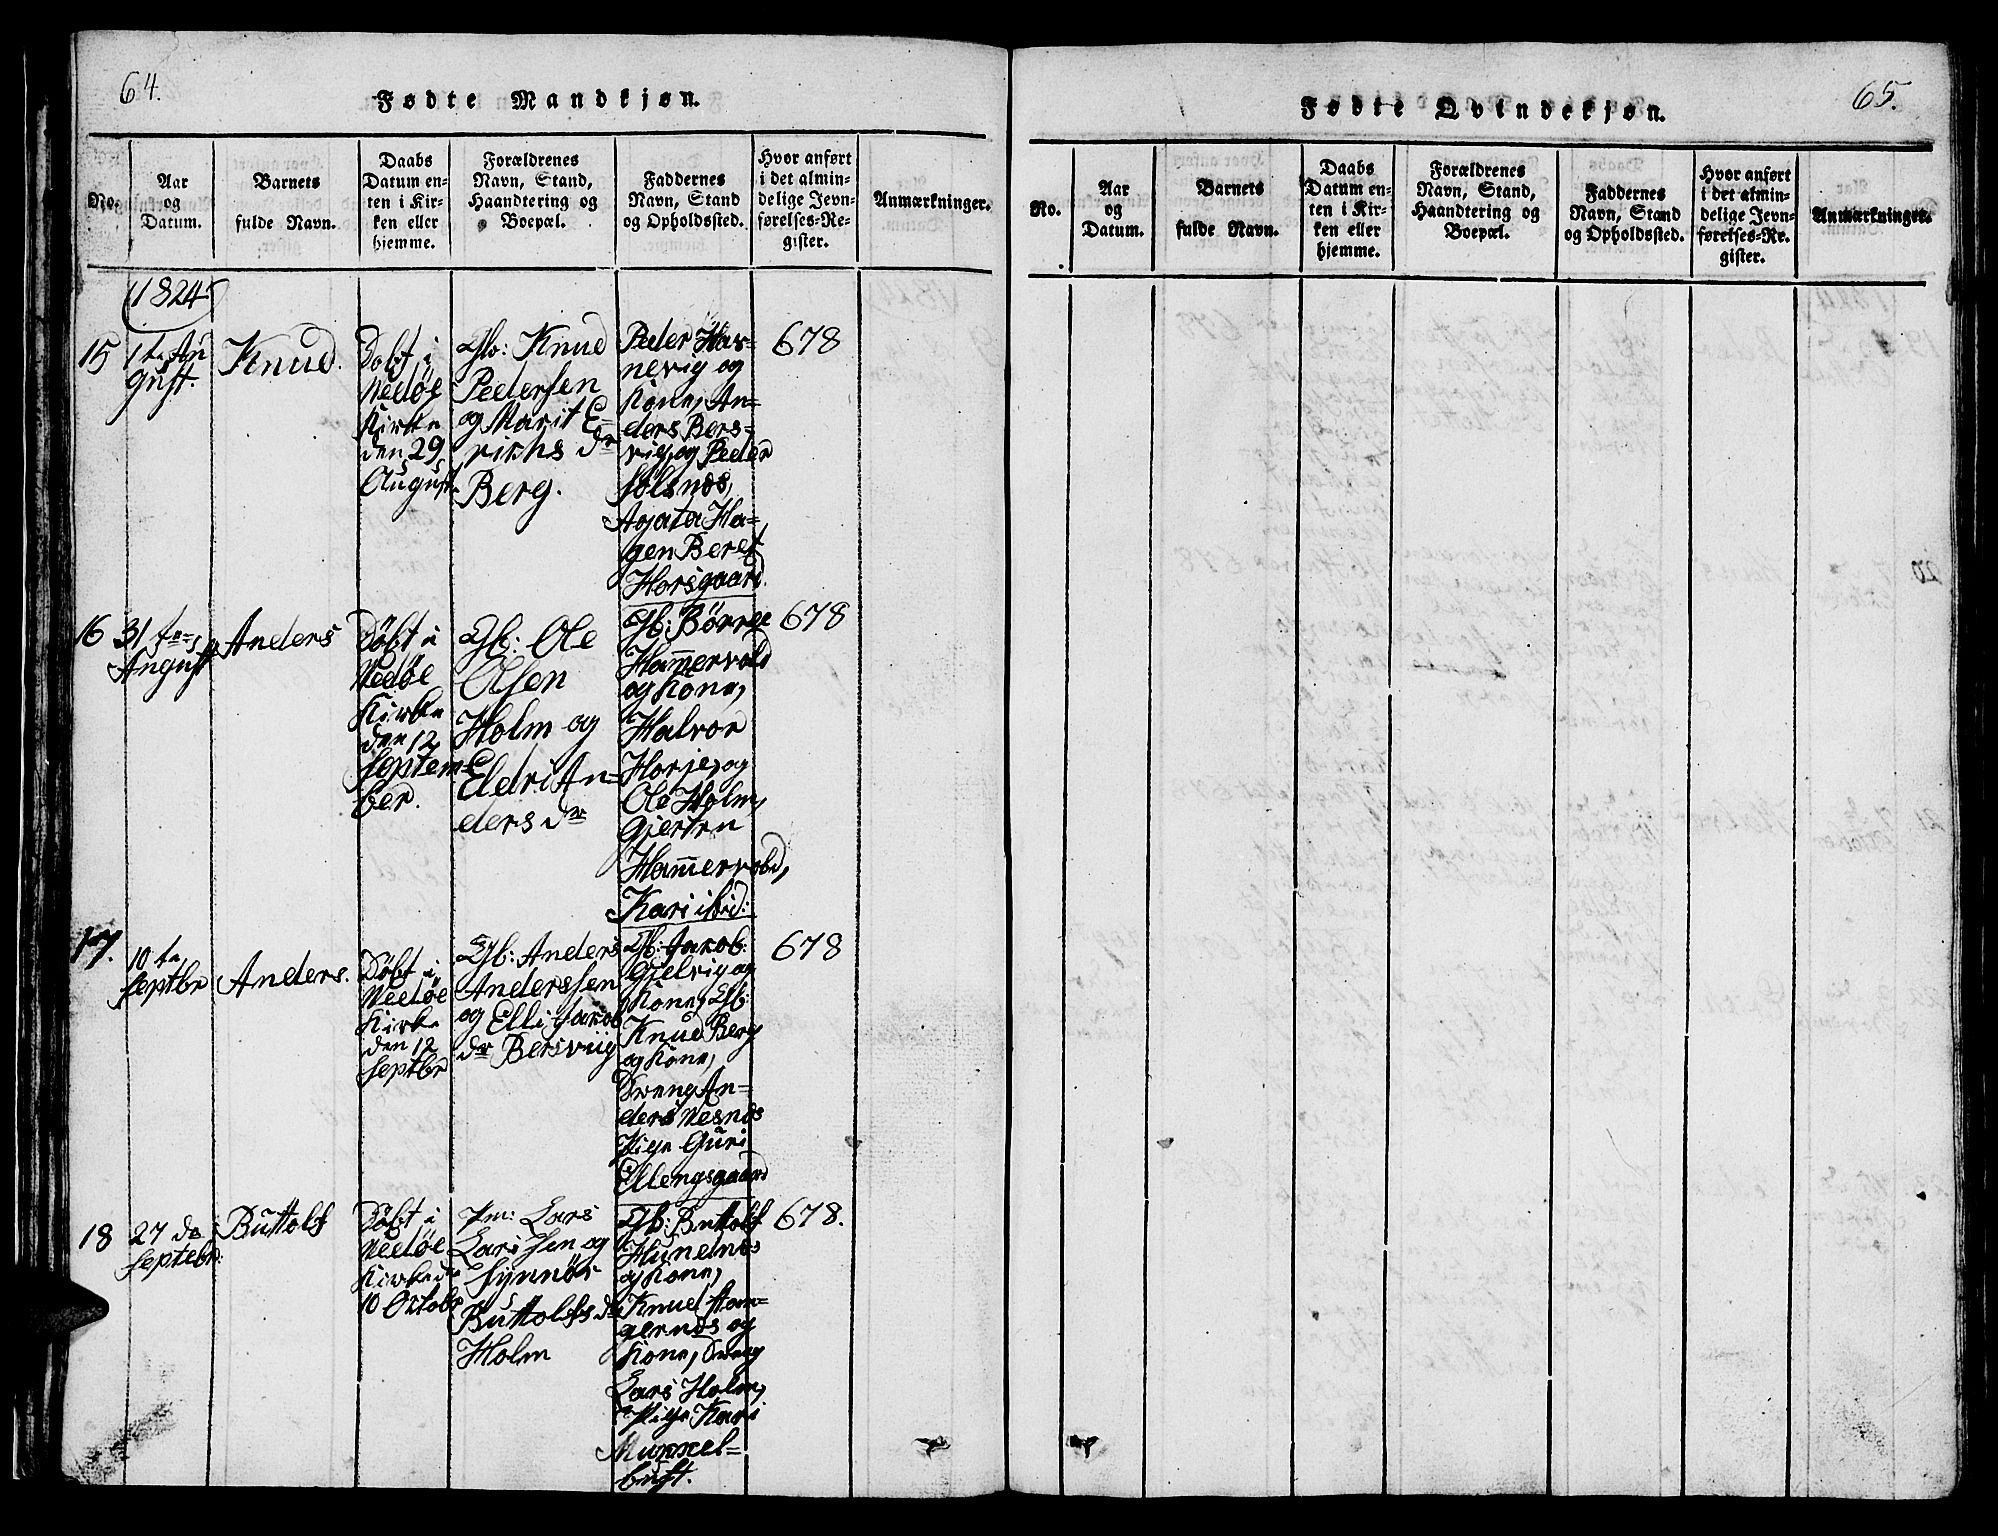 64.
Fødte Mandkjøn.
No.
Aar
og
Datum.
Barnets
fulde Navn.
Daabs
Datum en-
ten i Kir-
ken eller
hjemme.
Forældrenes
Navn, Stand,
Haandtering og
Boepæl.
Faddernes
Navn, Stand
og Opholdssted.
Hvor anført
i det almin-
delige Jevn-
førelses-Re-
gister.
Anmærkninger.
1824
15
1te Au
gust.
Knud.
Dobt i
Medøe
Kirke
den 29
August.
Gb: Knud
Pedersen
og Marit E-
richs dr
Berg.
Peder Har-
nevig og
Kone, An-
ders Bers-
vig, og Peder
Sølsnæs,
Agata Ha-
gen Beret
Horsgaard.
678
16
31 te
August
Anders
Døbt i
Medøe
Kirke
den 12
Septem-
ber.
Gb: Ole
Olsen
Holm og
Eldri An-
ders dr
Gb: Børre
Ham̄ervold
og Kone,
Halvor
Horje, og
Ole Holm,
Gjertru
Ham̄ervold,
Kari ibid:
678
17.
10 te
Septbr
Anders.
Døbt i
Medøe
Kirke
den 12
Septbr
Gb: Anders
Anderssen
og Elli Jakob
dr Bersviig
Gb: Jakob
Gjelvig og
Kone, Gb:
Knud Berg
og Kone,
Dreng An-
ders Nesnæs
Pige Guri
Ellengsgaard
678
18
27 de
Septebr:
Buttolf
Døbt i
Medøe
Kirke d
10 Octobr
Pm: Lars
Larssen og
Synnør
Buttolfs dr
Holm
Gb: Buttolf
Hunsnæs
og Kone,
Knud Stan-
gernæs og
Kone, Dreng
Lars Holm,
Pige Kari
Munkel-
bust.
678.
65.
Fødte Qvindekjøn.
No.
Aar
og
Datum.
Barnets
fulde Navn.
Daabs
Datum en-
ten i Kir-
ken eller
hjemme.
Forældrenes
Navn, Stand,
Haandtering og
Boepæl.
Faddernes
Navn, Stand
og Opholdssted.
Hvor anført
i det almin-
delige Jevn-
førelses-Re-
gister.
Anmærkninger.